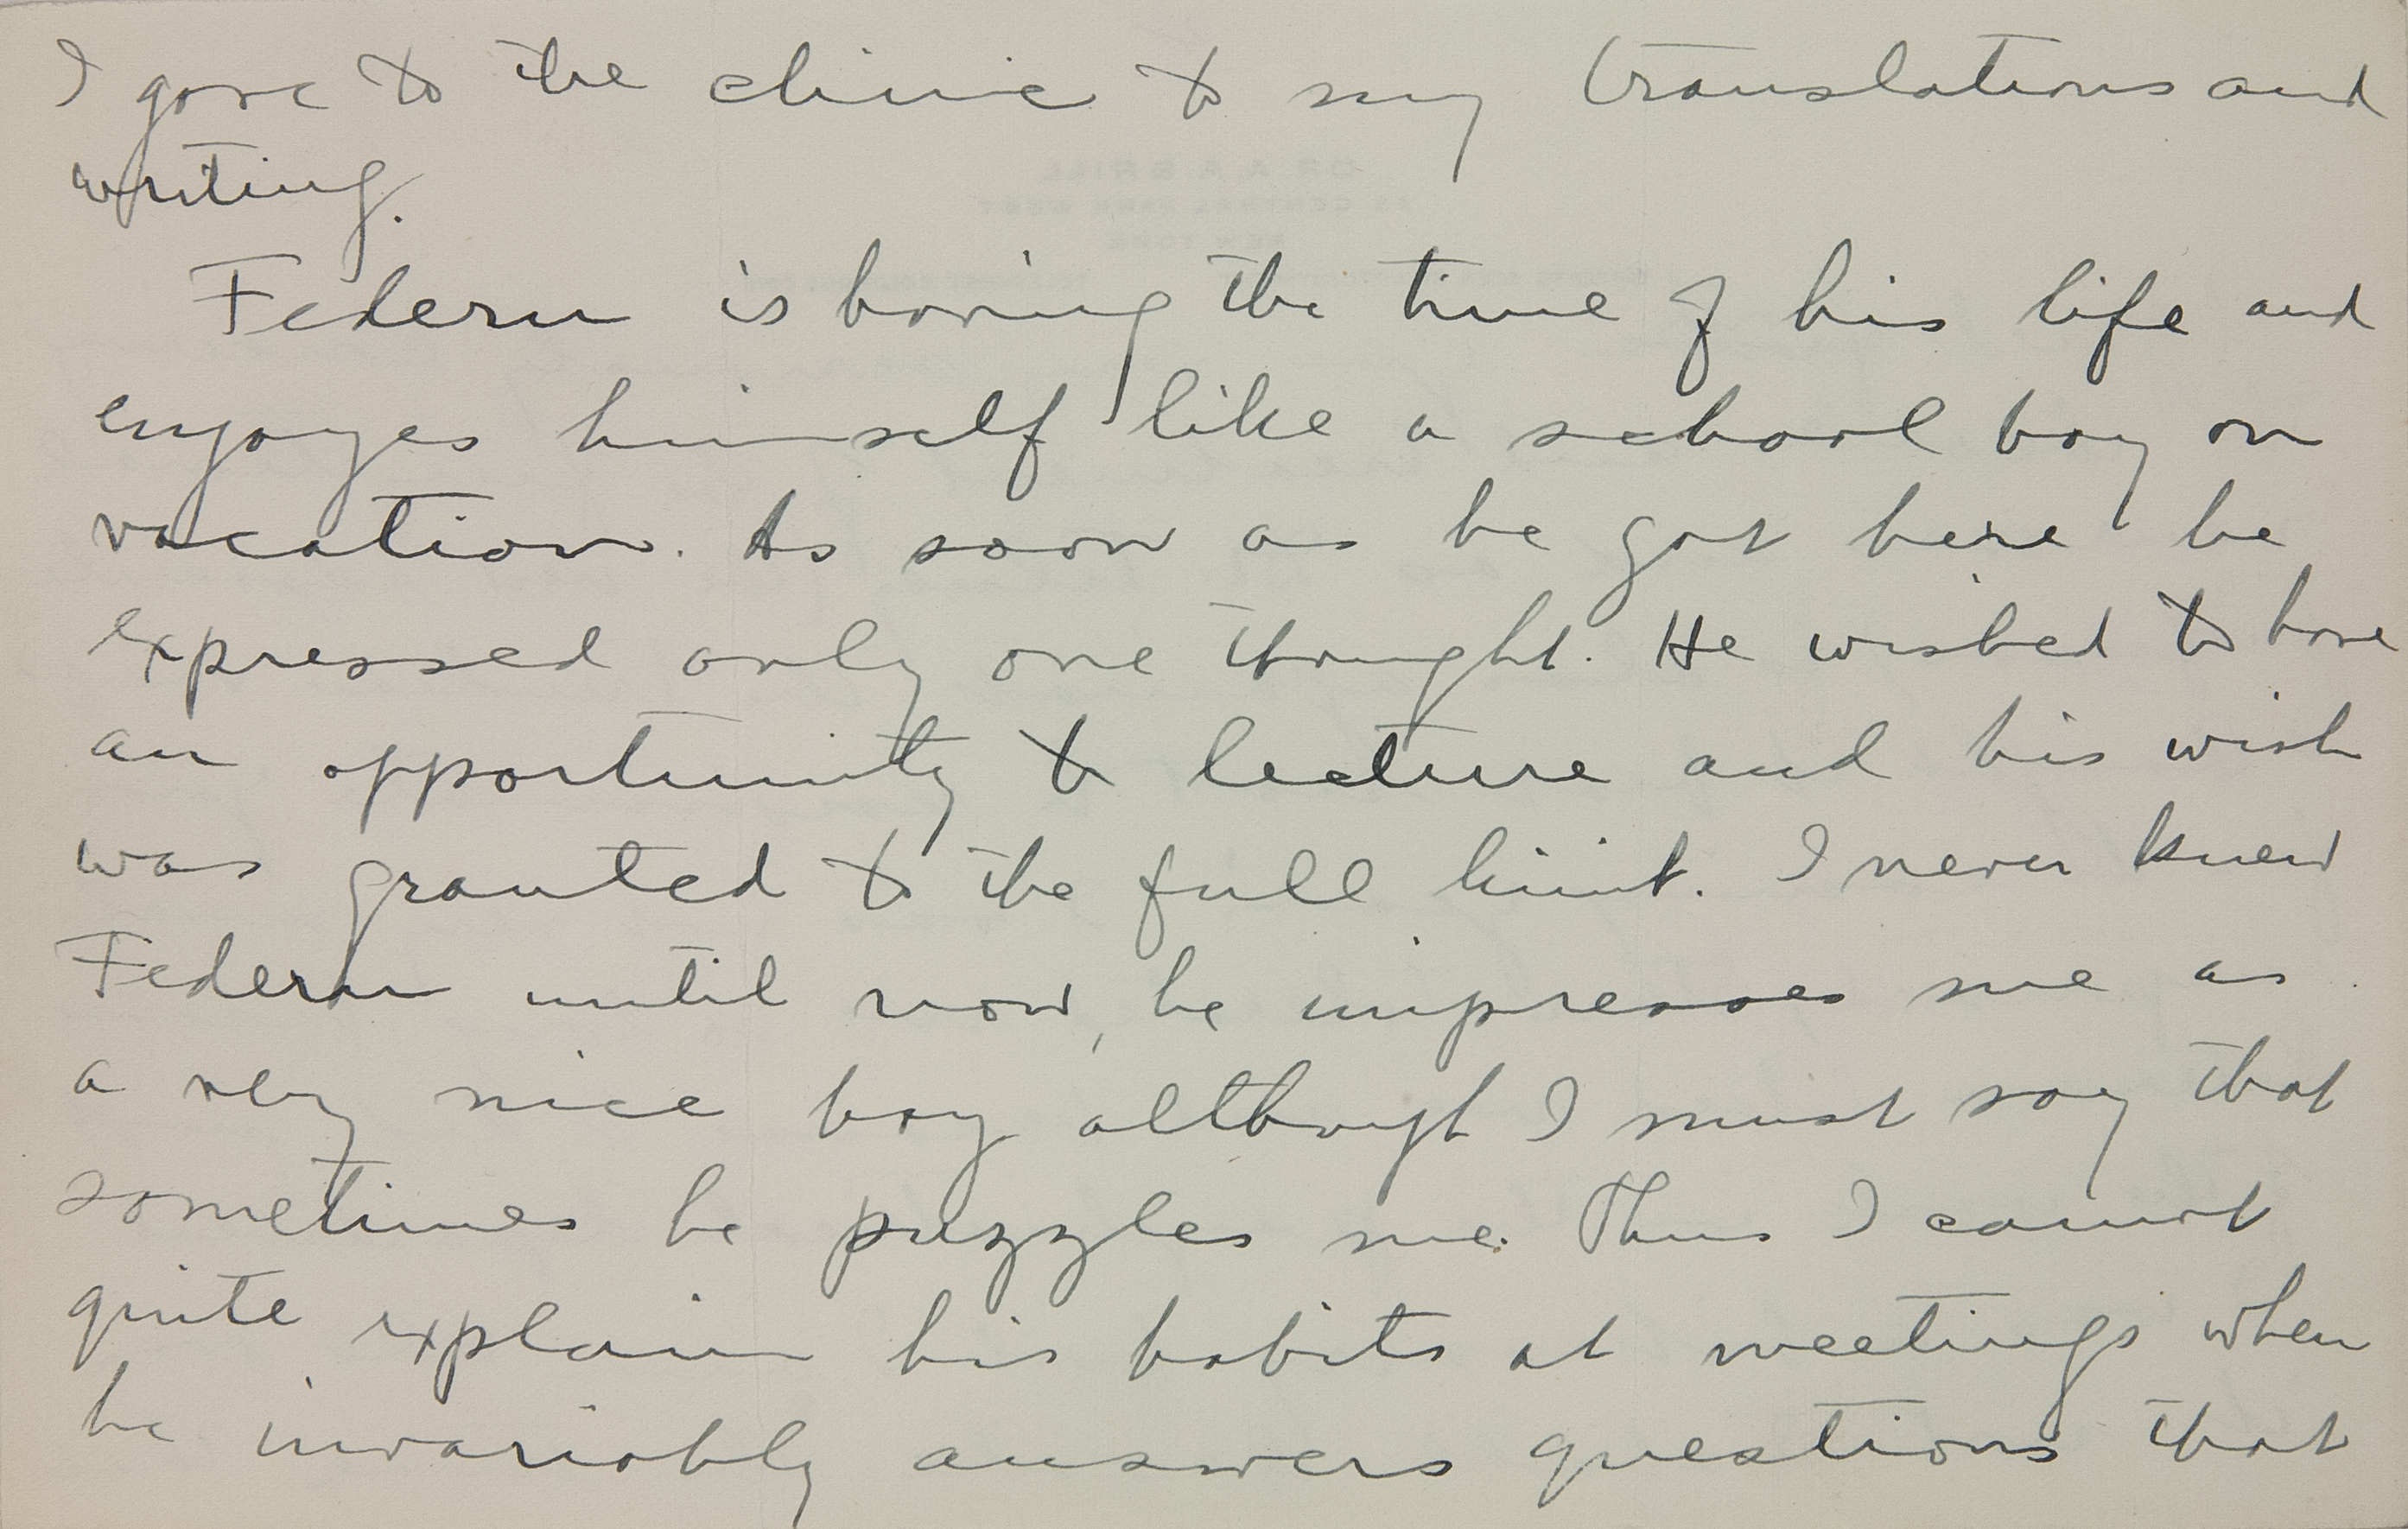 I gave to the clinic to my translations and
writing.
Federn is having the time of his life and
enjoyes himself like a school boy on
vacation. As soon as he got here he
expressed only one thought. He wished to have
an opportunity to lecture and his wish
was granted to the full limit. I never knew
Federn until now, he impresses me as
a very nice boy although I must say that
sometimes he puzzles me. Thus I cannot
quite explain his habits at meetings when
he invariably answers questions that